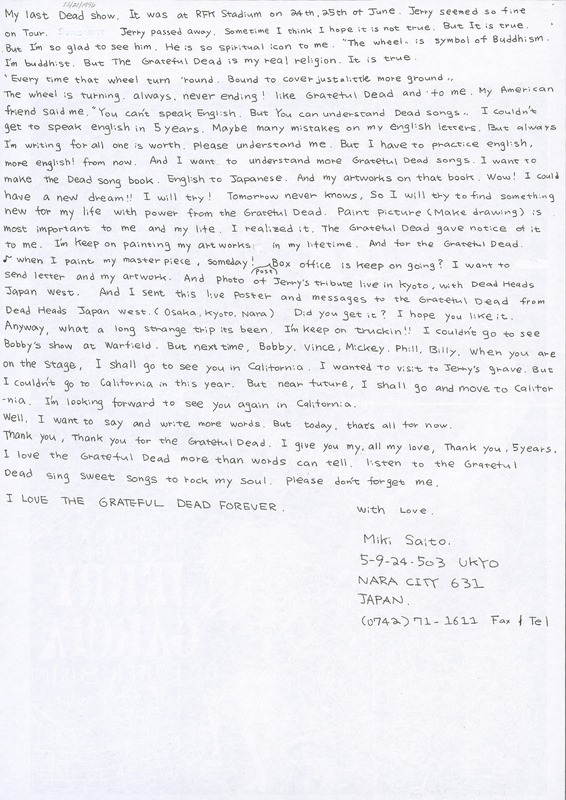 12/21/1996
My last Dead show. It was at RFK Stadium on 24th, 25th of June. Jerry seemed so fine
on Tour. Jerry passed away. Sometime I think I hope it is not true. But It is true.
But I'm so glad to see him. He is so spiritual icon to me. "The wheel" is symbol of Buddhism.
I'm buddhist. But The Grateful Dead is my real religion. It is true.
"Every time that wheel turn 'round. Bound to cover just a little more ground."
The wheel is turning. always, never ending! like Grateful Dead and to me. My American
friend said me. "You can't speak English. But You can understand Dead songs". I couldn't
get to speak english in 5 years. Maybe many mistakes on my english letters. But always
I'm writing for all one is worth. please understand me. But I have to practice english,
more english! from now. And I want to understand more Grateful Dead songs. I want to
make the Dead song book. English to Japanese. And my artworks on that book. Wow! I could
have a new dream!! I will try! Tomorrow never knows, So I will try to find something
new for my life with power from the Grateful Dead. Paint Picture (Make drawing) is
most important to me and my life. I realized it. The Grateful Dead gave notice of it
to me. I'm keep on painting my artworks in my lifetime. And for the Grateful Dead.
♪ when I paint my masterpiece, someday! (Post) Box office is keep on going? I want to
send letter and my artwork. And photo of Jerry's tribute live in Kyoto, with Dead Heads
Japan west. And I sent this live Poster and messages to the Grateful Dead from
Dead Heads Japan west. (Osaka, Kyoto, Nara) Did you get it? I hope you like it.
Anyway, what a long strange trip its been. I'm keep on truckin'!! I couldn't go to see
Bobby's show at Warfield. But next time, Bobby. Vince, Mickey. Phill, Billy, when you are
on the stage, I shall go to see you in California. I wanted to visit to Jerry's grave. But
I couldn't go to California in this year. But near future, I shall go and move to Califor
-nia. I'm looking forward to see you again in California.
Well, I want to say and write more words. But today, that's all for now.
Thank you, Thank you for the Grateful Dead. I give you my, all my love, Thank you, 5 years.
I love the Grateful Dead more than words can tell. listen to the Grateful
Dead sing sweet songs to rock my soul. Please don't forget me.
I LOVE THE GRATEFUL DEAD FOREVER.
with Love.
Miki Saito.
5-9-24-503 UKYO
NARA CITY 631
JAPAN.
(0742) 71-1611 Fax & Tel